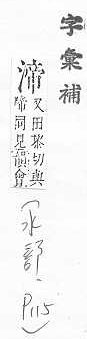 字彙補
渧
又田黎切與
啼同見韻會
(水部, P115)